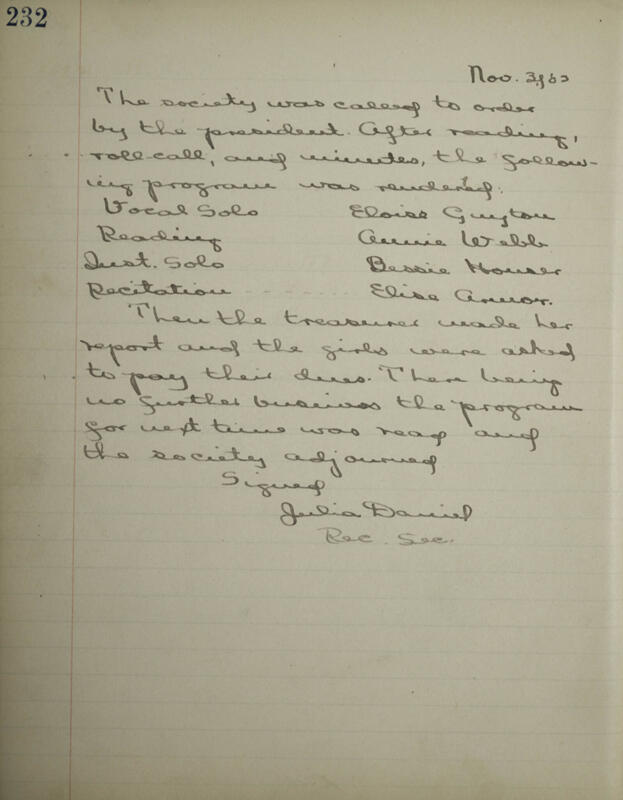 232
Nov. 3,
The society was called to order
by the president. After reading,
roll-call, and minutes, the follow-
ing program was rendered:
Vocal Solo Eloise Guyton
Reading Annie Webb
Inst. Solo Bessie Houser
Recitation - - - - - - Elise Armor.
Then the treasurer made her
report and the girls were asked
to pay their dues. There being
no further business the program
for next time was read and
the society adjourned
Signed
Julia Daniel
Rec. Sec.